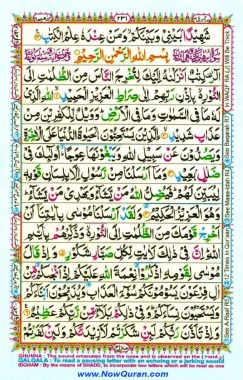 ٢٣١
شَهِيْدًۢا بَيْنِيْ وَبَيْنَكُمْ وَمَنْ عِنْدَهٗ عِلْمُ الْكِتٰبِ
بِسْمِ اللّٰهِ الرَّحْمٰنِ الرَّحِيْمِ
الٓرٰ كِتٰبٌ اَنْزَلْنٰهُ اِلَيْكَ لِتُخْرِجَ النَّاسَ مِنَ الظُّلُمٰتِ اِلَى
النُّوْرِ بِاِذْنِ رَبِّهِمْ اِلٰى صِرَاطِ الْعَزِيْزِ الْحَمِيْدِ اللّٰهِ الَّذِيْ لَهٗ
مَا فِي السَّمٰوٰتِ وَمَا فِي الْاَرْضِ وَوَيْلٌ لِّلْكٰفِرِيْنَ مِنْ
عَذَابٍ شَدِيْدٍ الَّذِيْنَ يَسْتَحِبُّوْنَ الْحَيٰوةَ الدُّنْيَا عَلَى الْاٰخِرَةِ
وَيَصُدُّوْنَ عَنْ سَبِيْلِ اللّٰهِ وَيَبْغُوْنَهَا عِوَجًا اُولٰٓئِكَ فِيْ
ضَلٰلٍۢ بَعِيْدٍ وَمَآ اَرْسَلْنَا مِنْ رَّسُوْلٍ اِلَّا بِلِسَانِ قَوْمِهٖ
لِيُبَيِّنَ لَهُمْ فَيُضِلُّ اللّٰهُ مَنْ يَّشَآءُ وَيَهْدِيْ مَنْ يَّشَآءُ
وَهُوَ الْعَزِيْزُ الْحَكِيْمُ وَلَقَدْ اَرْسَلْنَا مُوْسٰى بِاٰيٰتِنَآ اَنْ
اَخْرِجْ قَوْمَكَ مِنَ الظُّلُمٰتِ اِلَى النُّوْرِ وَذَكِّرْهُمْ بِاَيّٰىمِ اللّٰهِ
اِنَّ فِيْ ذٰلِكَ لَاٰيٰتٍ لِّكُلِّ صَبَّارٍ شَكُوْرٍ وَاِذْ قَالَ
مُوْسٰى لِقَوْمِهِ اذْكُرُوْا نِعْمَةَ اللّٰهِ عَلَيْكُمْ اِذْ اَنْجٰىكُمْ
مِّنْ اٰلِ فِرْعَوْنَ يَسُوْمُوْنَكُمْ سُوْٓءَ الْعَذَابِ وَيُذَبِّحُوْنَ اَبْنَآءَكُمْ
وَيَسْتَحْيُوْنَ نِسَآءَكُمْ وَفِيْ ذٰلِكُمْ بَلَآءٌ مِّنْ رَّبِّكُمْ عَظِيْمٌ
وَاِذْ تَاَذَّنَ رَبُّكُمْ لَئِنْ شَكَرْتُمْ لَاَزِيْدَنَّكُمْ وَلَئِنْ كَفَرْتُمْ
QALQALA : To read a pausing letter with an echoing or a jerking sound
IDGHAM : By the means of SHADD, to incorporate two letters which will be read as one
www.NowQuran.com